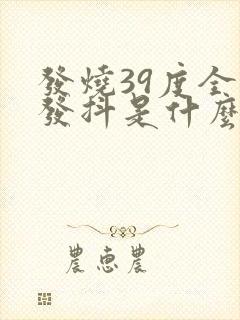 發燒39度全
發抖是什麼
農惠農